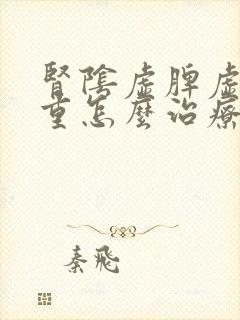 腎陰虛脾虛
重怎麼治療
秦飛